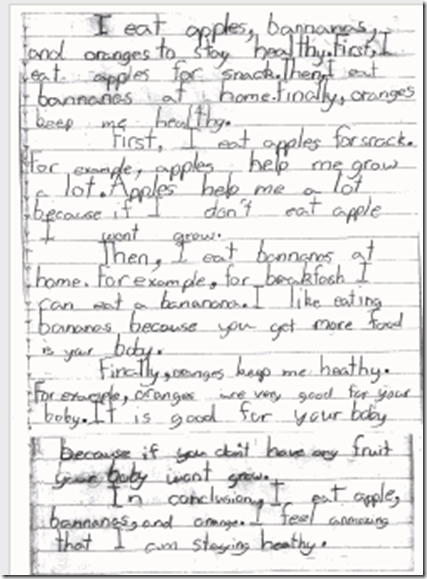 I eat apples, bannanas,
and oranges to stay healthy.First,I
eat apples for snack.Then,I eat
bannanas at home.Finally,oranges
keep me healthy.
First, I eat apples for snack.
For example, apples help me grow
a lot. Apples help me a lot
because if I don't eat apple
I wont grow.
Then, I eat bannanas at
home. For example, for beakfash I
can eat a bananana. I like eating
bananas because you get more food
in your boby.
Finally,oranges keep me heathy.
For example, oranges are very good for your
boby. It is good for your boby
because if you don't have any fruit
your boby wont grow.
In conclusion, I eat apple,
bannanas, and orange. I feel anmazing
that I am staying heathy.